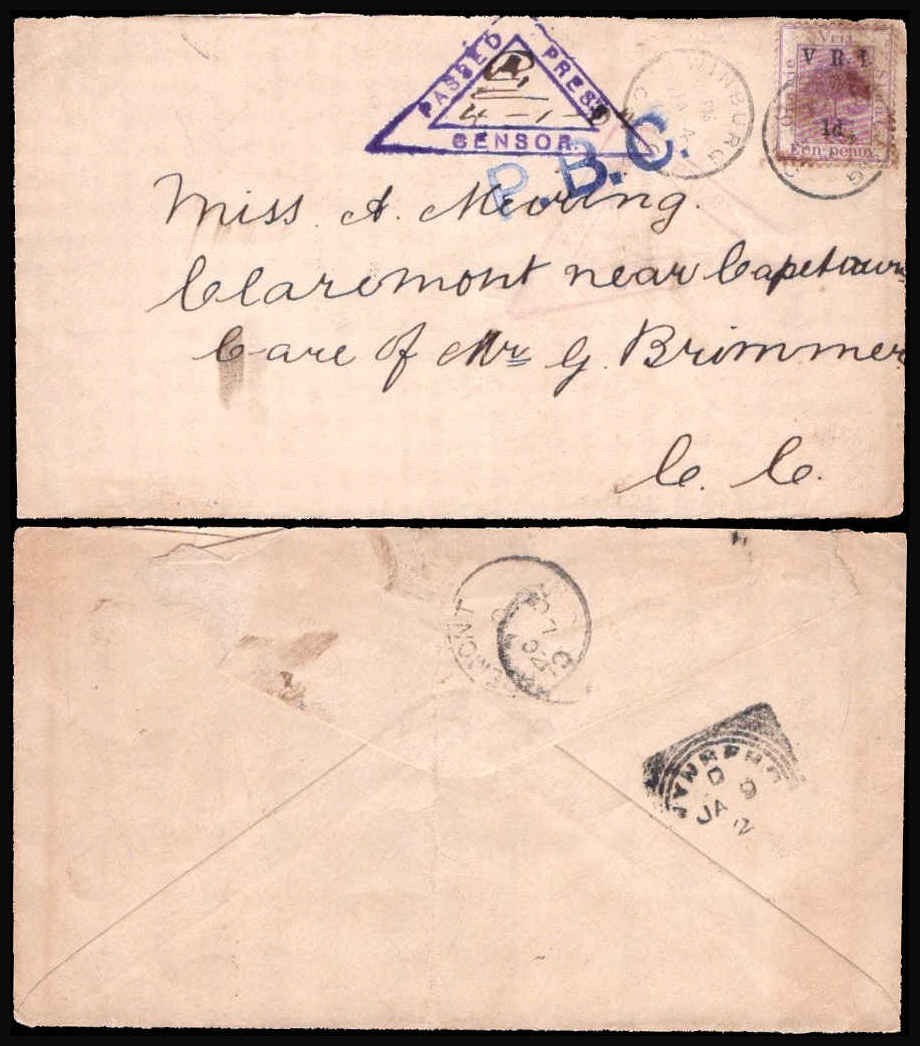 PASSED PRESS CENSOR.
4-1-
P.B.C.
WINBURG
Vrij
V R I
1d.
Een penny
Miss A. Meiring.
Claremont near Capetown
Care of Mrs G. Brimmer
C. C.
WYNBERG
D 9
JA